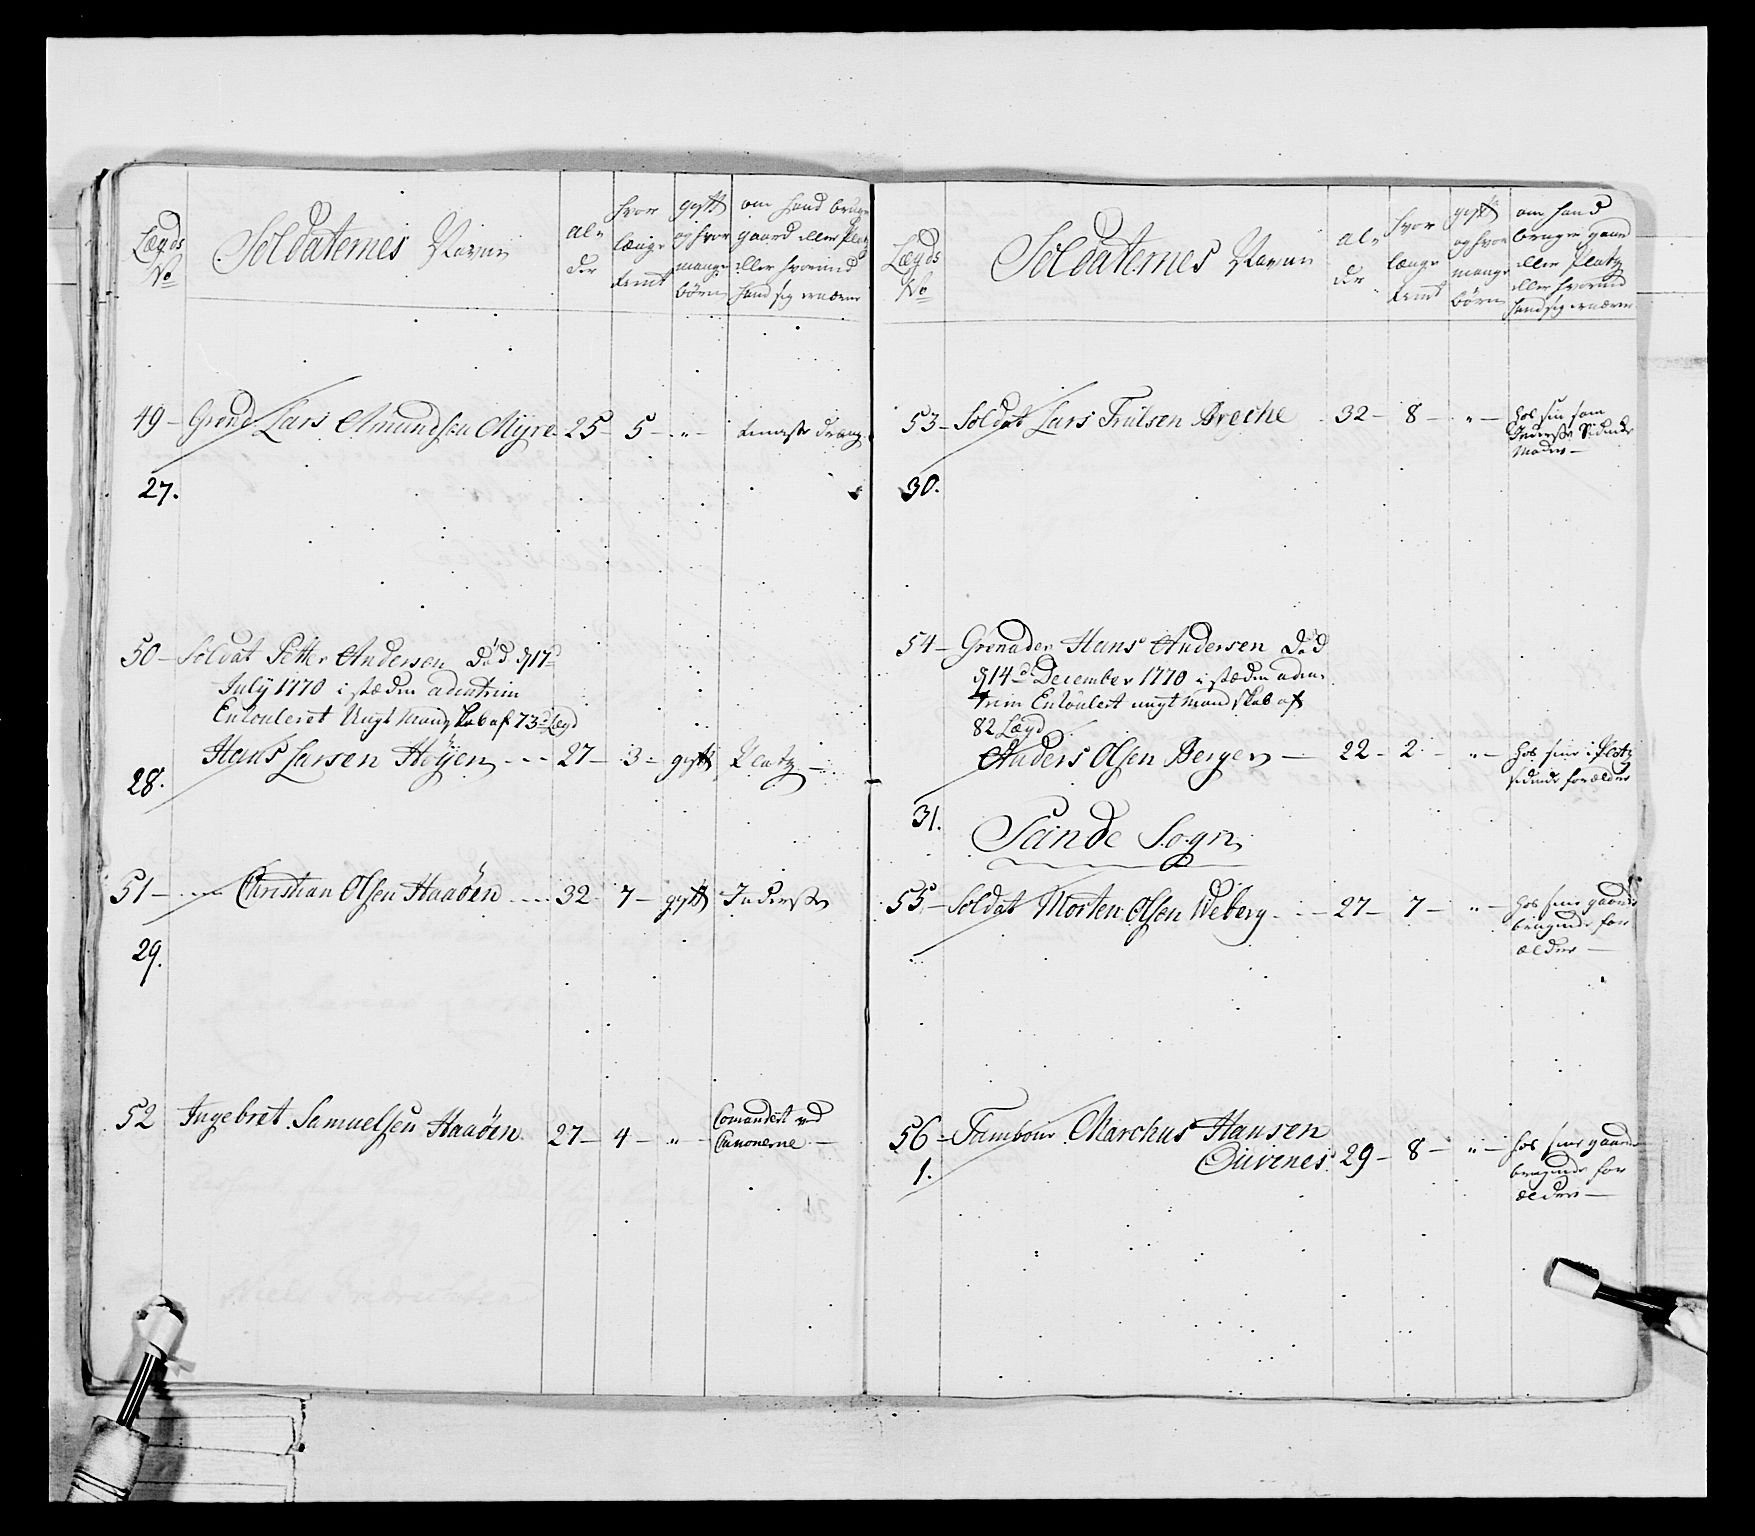 Lægds
No
Soldaternes Navn
al-
der
hvor
længe
tient
gift
og hvor
mange
börn
om hand bruger
gaard eller Platz
eller hvorved
hand sig ernærer
49 - Grend. Lars Amundsen Myre - 25 - 5 - „ -
27.
50 - Soldat Petter Andersen Död d 17de
July 1770 i stæden adentrim
Enroulleret Ungt Mandskab af 73de Lægd
Hans Larsen Höyen - - - 27 - 3 - gift Platz -
28.
51 - Christian Olsen Haaöen - - - 32 - 7 - gift Inderst
29.
52 Ingebret Samuelsen Haaöen 27 - 4 - „ -
Comandert ved
Canonerne -
Lægds
No
Soldaternes Navn
al-
der
hvor
længe
tient
gift
og hvor
mange
börn
om hand
bruger gaard
eller Platz
eller hvorved
hand sig ernærer
53 - Soldat Lars Trulsen Breche 32 - 8 - „ -
hos sin som
Inderste Sidende
Moder -
30.
54 - Grenader Hans Andersen Död
d 14de December 1770 i stæden aden-
trim Enroulert ungt Mandskab af
82 Lægd
Anders Olsen Bergen - 22 - 2 - „ -
hos sine i Platz
sidende forældre
31.
Sande Sogn
55 - Soldat Morten Olsen Weberg - - - 27 - 7 - „ -
hos sine gaard
brugende for
ældre -
56 - Tambour Marchus Hansen
Duvenes 29 - 8 - „ -
hos sine gaard
brugende for
ældre -
1.